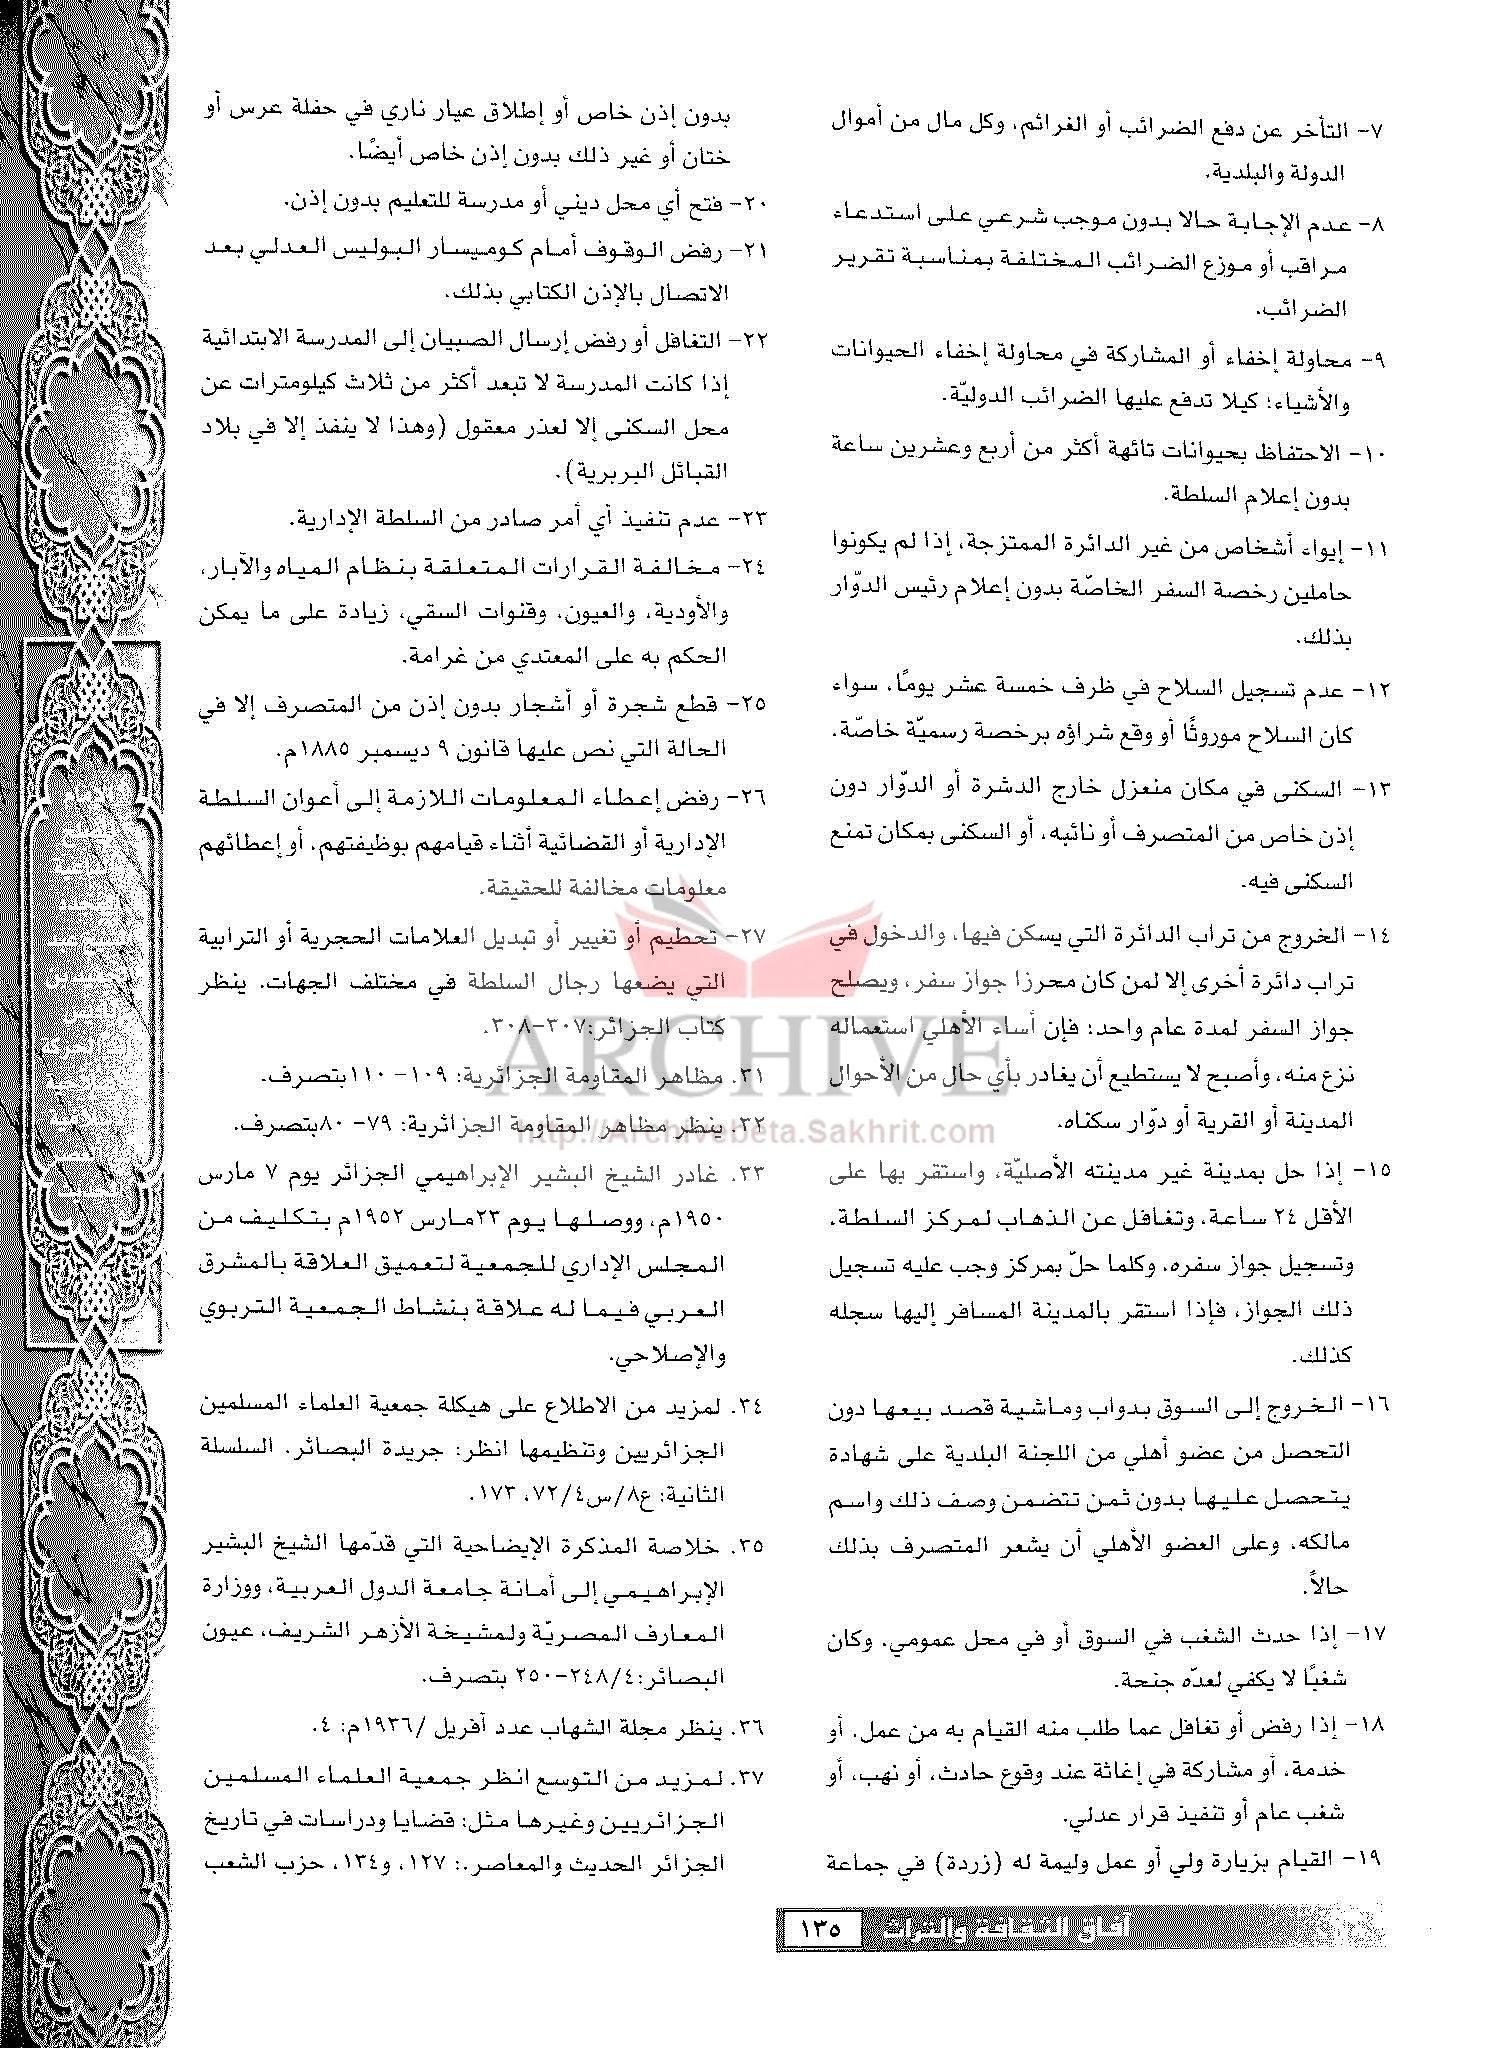 ٧- التأخر عن دفع الضرائب أو الغرائم، وكل مال من أموال
الدولة والبلدية.
٨- عدم الإجابة حالا بدون موجب شرعي على استدعاء
مراقب أو موزع الضرائب المختلفة بمناسبة تقرير
الضرائب.
٩- محاولة إخفاء أو المشاركة في محاولة إخفاء الحيوانات
والأشياء؛ كيلا تدفع عليها الضرائب الدوليّة.
١٠- الاحتفاظ بحيوانات تائهة أكثر من أربع وعشرين ساعة
بدون إعلام السلطة.
١١- إيواء أشخاص من غير الدائرة الممتزجة، إذا لم يكونوا
حاملين رخصة السفر الخاصّة بدون إعلام رئيس الدوّار
بذلك.
١٢- عدم تسجيل السلاح في ظرف خمسة عشر يومًا، سواء
كان السلاح موروثًا أو وقع شراؤه برخصة رسميّة خاصّة.
١٣- السكنى في مكان منعزل خارج الدشرة أو الدوّار دون
إذن خاص من المتصرف أو نائبه، أو السكنى بمكان تمنع
السكنى فيه.
١٤- الخروج من تراب الدائرة التي يسكن فيها، والدخول في
تراب دائرة أخرى إلا لمن كان محرزا جواز سفر، ويصلح
جواز السفر لمدة عام واحد؛ فإن أساء الأهلي استعماله
نزع منه، وأصبح لا يستطيع أن يغادر بأي حال من الأحوال
المدينة أو القرية أو دوّار سكناه.
١٥- إذا حل بمدينة غير مدينته الأصليّة، واستقر بها على
الأقل ٢٤ ساعة، وتغافل عن الذهاب لمركز السلطة،
وتسجيل جواز سفره، وكلما حلّ بمركز وجب عليه تسجيل
ذلك الجواز، فإذا استقر بالمدينة المسافر إليها سجله
كذلك.
١٦- الخروج إلى السوق بدواب وماشية قصد بيعها دون
التحصل من عضو أهلي من اللجنة البلدية على شهادة
يتحصل عليها بدون ثمن تتضمن وصف ذلك واسم
مالكه، وعلى العضو الأهلي أن يشعر المتصرف بذلك
حالاً.
١٧- إذا حدث الشغب في السوق أو في محل عمومي، وكان
شغبًا لا يكفي لعدّه جنحة.
١٨- إذا رفض أو تغافل عما طلب منه القيام به من عمل، أو
خدمة، أو مشاركة في إغاثة عند وقوع حادث، أو نهب، أو
شغب عام أو تنفيذ قرار عدلي.
١٩- القيام بزيارة ولي أو عمل وليمة له (زردة) في جماعة
بدون إذن خاص أو إطلاق عيار ناري في حفلة عرس أو
ختان أو غير ذلك بدون إذن خاص أيضًا.
٢٠- فتح أي محل ديني أو مدرسة للتعليم بدون إذن.
٢١- رفض الوقوف أمام كوميسار البوليس العدلي بعد
الاتصال بالإذن الكتابي بذلك.
٢٢- التغافل أو رفض إرسال الصبيان إلى المدرسة الابتدائية
إذا كانت المدرسة لا تبعد أكثر من ثلاث كيلومترات عن
محل السكنى إلا لعذر معقول (وهذا لا ينفذ إلا في بلاد
القبائل البربرية).
٢٣- عدم تنفيذ أي أمر صادر من السلطة الإدارية.
٢٤- مخالفة القرارات المتعلقة بنظام المياه والآبار،
والأودية، والعيون، وقنوات السقي، زيادة على ما يمكن
الحكم به على المعتدي من غرامة.
٢٥- قطع شجرة أو أشجار بدون إذن من المتصرف إلا في
الحالة التي نص عليها قانون ٩ ديسمبر ١٨٨٥م.
٢٦- رفض إعطاء المعلومات اللازمة إلى أعوان السلطة
الإدارية أو القضائية أثناء قيامهم بوظيفتهم، أو إعطائهم
معلومات مخالفة للحقيقة.
٢٧- تحطيم أو تغيير أو تبديل العلامات الحجرية أو الترابية
التي يضعها رجال السلطة في مختلف الجهات. ينظر
كتاب الجزائر:٣٠٧-٣٠٨.
٣١. مظاهر المقاومة الجزائرية: ١٠٩- ١١٠بتصرف.
٣٢. ينظر مظاهر المقاومة الجزائرية: ٧٩- ٨٠بتصرف.
٣٣. غادر الشيخ البشير الإبراهيمي الجزائر يوم ٧ مارس
١٩٥٠م، ووصلها يوم ٢٣مارس ١٩٥٢م بتكليف من
المجلس الإداري للجمعية لتعميق العلاقة بالمشرق
العربي فيما له علاقة بنشاط الجمعية التربوي
والإصلاحي.
٣٤. لمزيد من الاطلاع على هيكلة جمعية العلماء المسلمين
الجزائريين وتنظيمها انظر: جريدة البصائر. السلسلة
الثانية: ع٨/س٧٢/٤، ١٧٣.
٣٥. خلاصة المذكرة الإيضاحية التي قدّمها الشيخ البشير
الإبراهيمي إلى أمانة جامعة الدول العربية، ووزارة
المعارف المصريّة ولمشيخة الأزهر الشريف، عيون
البصائر:٢٤٨/٤-٢٥٠ بتصرف.
٣٦. ينظر مجلة الشهاب عدد أفريل /١٩٣٦م: ٤.
٣٧. لمزيد من التوسع انظر جمعية العلماء المسلمين
الجزائريين وغيرها مثل: قضايا ودراسات في تاريخ
الجزائر الحديث والمعاصر.: ١٢٧، و١٣٤، حزب الشعب
ARCHIVE
http://Archivebeta.Sakhrit.com
آفاق الثقافة والتراث ١٣٥